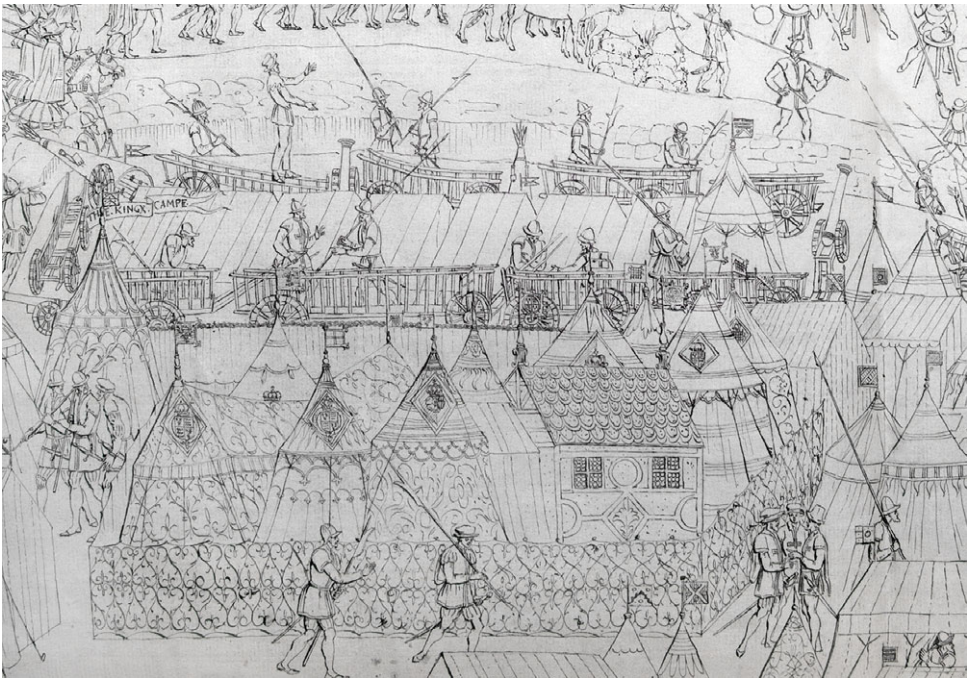 THE KINGX CAMPE